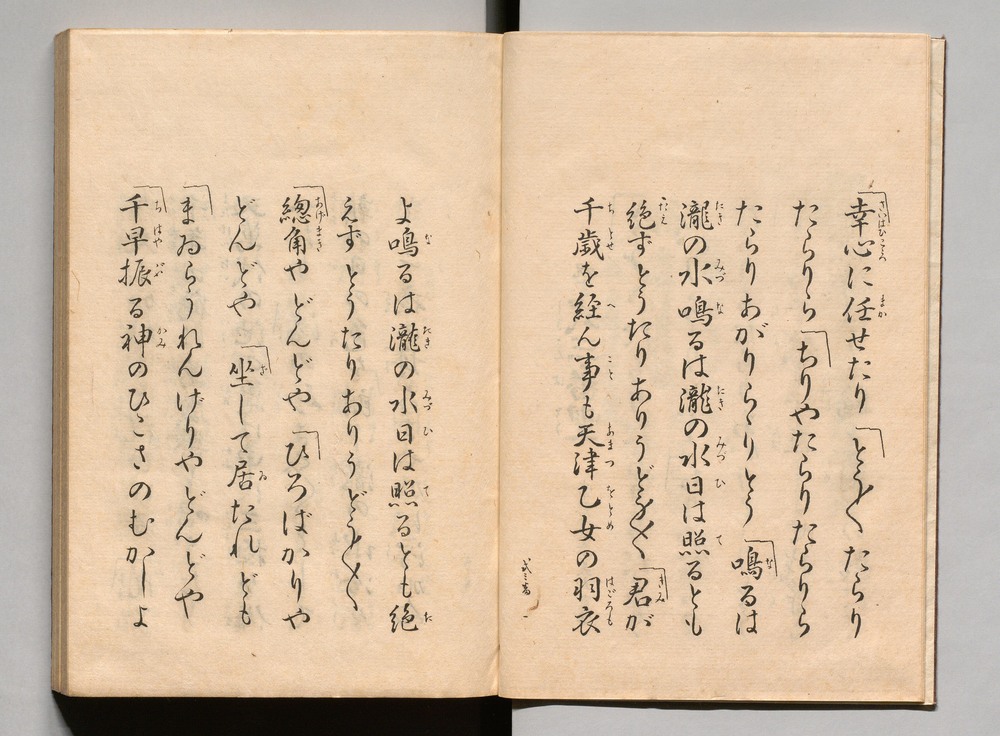 幸心に任せたり「とう〱たらり
たらりら「ちりやたらりたらりら
たらりあがりらゝりとう「鳴るは
瀧の水鳴るは瀧の水日は照るとも
絶ずとうたりありうどう〱「君が
千歳を経ん事も天津乙女の羽衣
よ鳴るは瀧の水日は照るとも絶
えずとうたりありうどう〱
「総角やどんどや「ひろばかりや
どんどや「坐して居たれども
「まゐらうれんげりやどんどや
「千早振る神のひこさのむかしよ